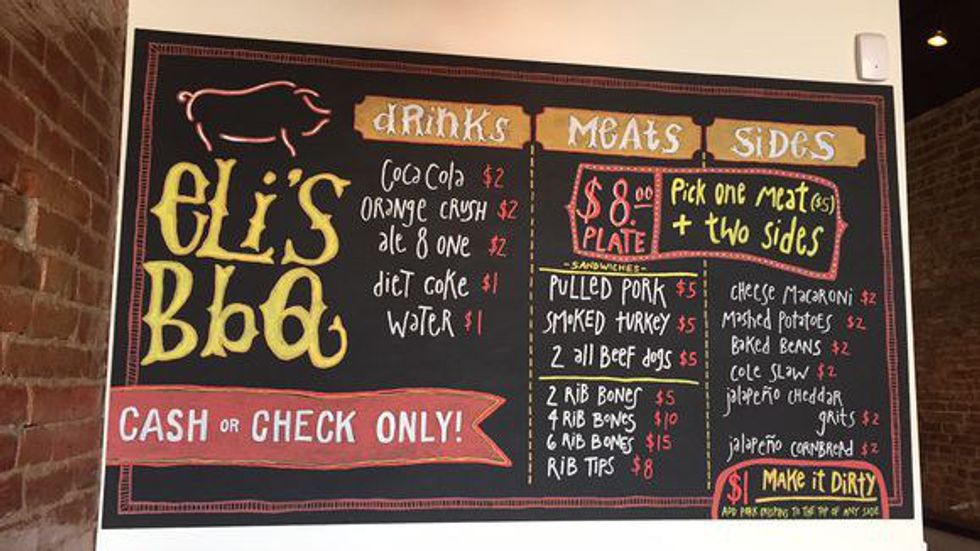 eLi's
BbQ
CASH OR CHECK ONLY!
dRinks
Coca Cola $2
ORANGE CRUSH $2
ale 8 one $2
diet coke $1
WateR $1
MEATS
SiDES
$8.00
PLATE
Pick one Meat ($5)
+ two sides
- SANDWICHES -
PULLED PORK $5
SMOKED tuRKEY $5
2 all BEEF dogs $5
2 RIB BONES $5
4 RIB BONES $10
6 RIB BONES $15
RIB TIPS $8
cHEESE MACARONI $2
MasHED POTATOES $2
BaKED BEANS $2
cOLE SLAW $2
jalapeño cHEDDAR
gRitS $2
jalapeño CORNBREAD $2
$1 MAKE it DiRTY
ADD PORK TO THE TOP OF ANY SIDE